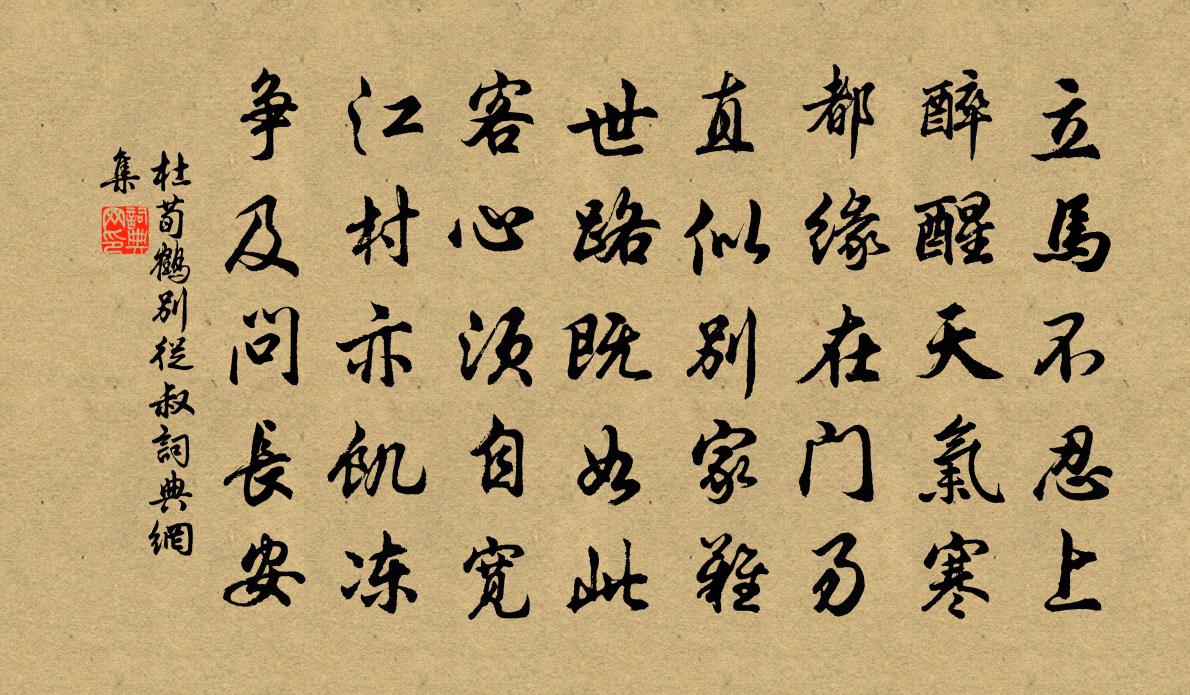 立馬不忍上
醉醒天氣寒
都緣在門易
直似別家難
世路既如此
客心須自寬
江村亦飢凍
争及問長安
杜荀鶴別從叔詞典網
集
詞典
网印